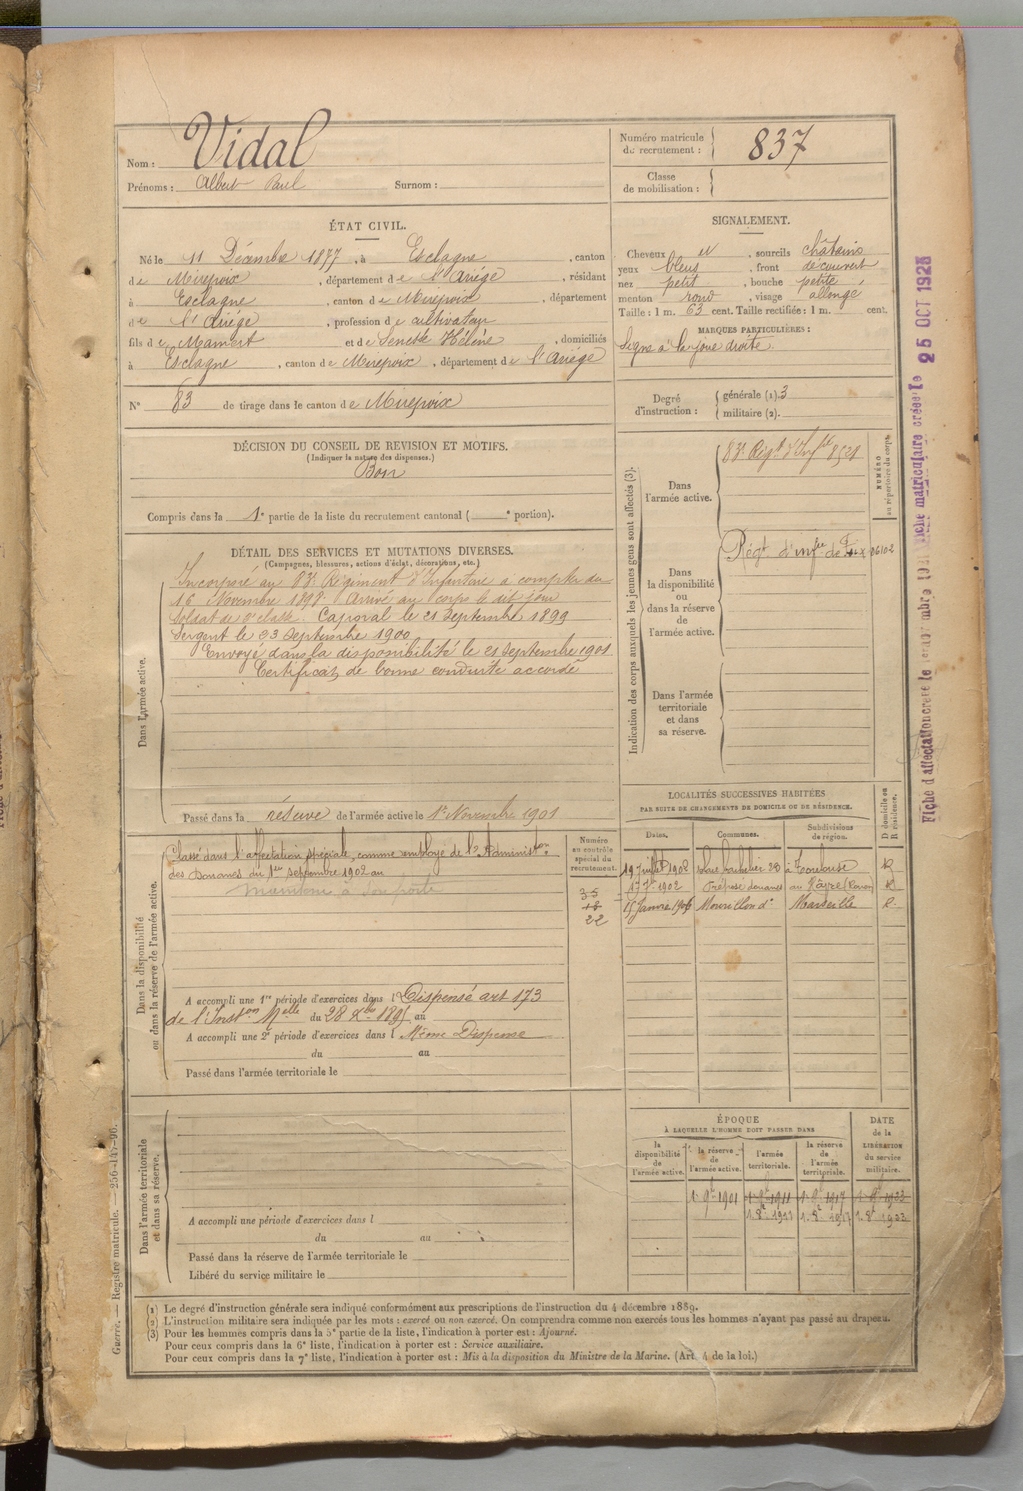 Nom : Vidal
Prénoms : Albert Paul Surnom :
Numéro matricule du recrutement : 837
Classe de mobilisation :
ÉTAT CIVIL.
Né le 11 Décembre 1877, à Esclagne, canton
de Mirepoix, département de l'Ariège, résidant
à Esclagne, canton de Mirepoix, département
de l'Ariège, profession de cultivateur
fils de Mamert et de Senesse Hélène, domiciliés
à Esclagne, canton de Mirepoix, département de l'Ariège
N° 83 de tirage dans le canton de Mirepoix
SIGNALEMENT.
Cheveux et, sourcils châtains
yeux bleus, front découvert
nez petit, bouche petite
menton rond, visage allongé
Taille : 1 m. 63 cent. Taille rectifiée : 1 m. cent.
MARQUES PARTICULIÈRES :
Signe à la joue droite.
Degré d'instruction : générale (1). 3
militaire (2).
DÉCISION DU CONSEIL DE REVISION ET MOTIFS.
(Indiquer la nature des dispenses.)
Bon
Compris dans la 1e partie de la liste du recrutement cantonal ( e portion).
DÉTAIL DES SERVICES ET MUTATIONS DIVERSES.
(Campagnes, blessures, actions d'éclat, décorations, etc.)
Dans l'armée active.
Incorporé au 83e Régiment d'Infanterie à compter du
16 Novembre 1898. Arrivé au corps le dit jour
Soldat de 2e classe. Caporal le 21 Septembre 1899
Sergent le 23 Septembre 1900
Envoyé dans la disponibilité le 21 Septembre 1901
Certificat de bonne conduite accordé
Passé dans la réserve de l'armée active le 1er Novembre 1901
Indication des corps auxquels les jeunes gens sont affectés (3).
NUMÉRO au répertoire du corps.
Dans l'armée active.
83e Régt d'Infrie 8521
Dans la disponibilité ou dans la réserve de l'armée active.
Régt d'infie de Foix 06102
Dans l'armée territoriale et dans sa réserve.
Dans la disponibilité ou dans la réserve de l'armée active.
Classé dans l'affectation spéciale, comme employé de l'Administon
des Douanes du 1er septembre 1902 au
Numéro au contrôle spécial du recrutement.
35
16
22
A accompli une 1re période d'exercices dans l Dispensé art 173
de l'Inston Melle du 28 Xbre 1895 au
A accompli une 2e période d'exercices dans l Même Dispense
du au
Passé dans l'armée territoriale le
LOCALITÉS SUCCESSIVES HABITÉES
PAR SUITE DE CHANGEMENTS DE DOMICILE OU DE RÉSIDENCE.
Dates. Communes. Subdivisions de région. D domicile ou R résidence.
19 Juillet 1902 à Toulouse R
1902 Préposé douanes au R
15 Janvier 1906 Mourillon do Marseille R
ÉPOQUE
À LAQUELLE L'HOMME DOIT PASSER DANS
la disponibilité de l'armée active. la réserve de l'armée active. l'armée territoriale. la réserve de l'armée territoriale. DATE de la LIBÉRATION du service militaire.
1er 9b 1901 1er 9b 1911 1er 9b 1917 1er 9b 1923
Dans l'armée territoriale et dans sa réserve.
A accompli une période d'exercices dans l
du au
Passé dans la réserve de l'armée territoriale le
Libéré du service militaire le
(1) Le degré d'instruction générale sera indiqué conformément aux prescriptions de l'instruction du 4 décembre 1889.
(2) L'instruction militaire sera indiquée par les mots : exercé ou non exercé. On comprendra comme non exercés tous les hommes n'ayant pas passé au drapeau.
(3) Pour les hommes compris dans la 5e partie de la liste, l'indication à porter est : Ajourné.
Pour ceux compris dans la 6e liste, l'indication à porter est : Service auxiliaire.
Pour ceux compris dans la 7e liste, l'indication à porter est : Mis à la disposition du Ministre de la Marine. (Art. 4 de la loi.)
Guerre. — Registre matricule. — 256-145-96.
Fiche matriculaire créée le 25 OCT 1928